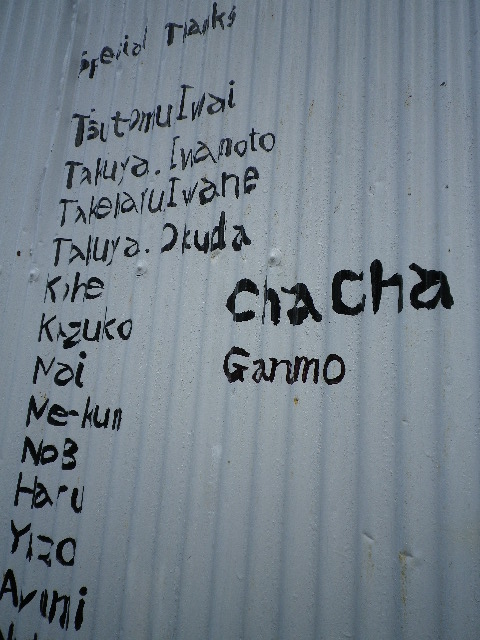 Special Thanks
Tsutomu Iwai
Takuya. Iwamoto
Takeharu Iwane
Takuya. Okuda
Kazuko
Nai
Ne-kun
NoB
Haru
Yizo
Ayumi
ChaCha
Ganmo